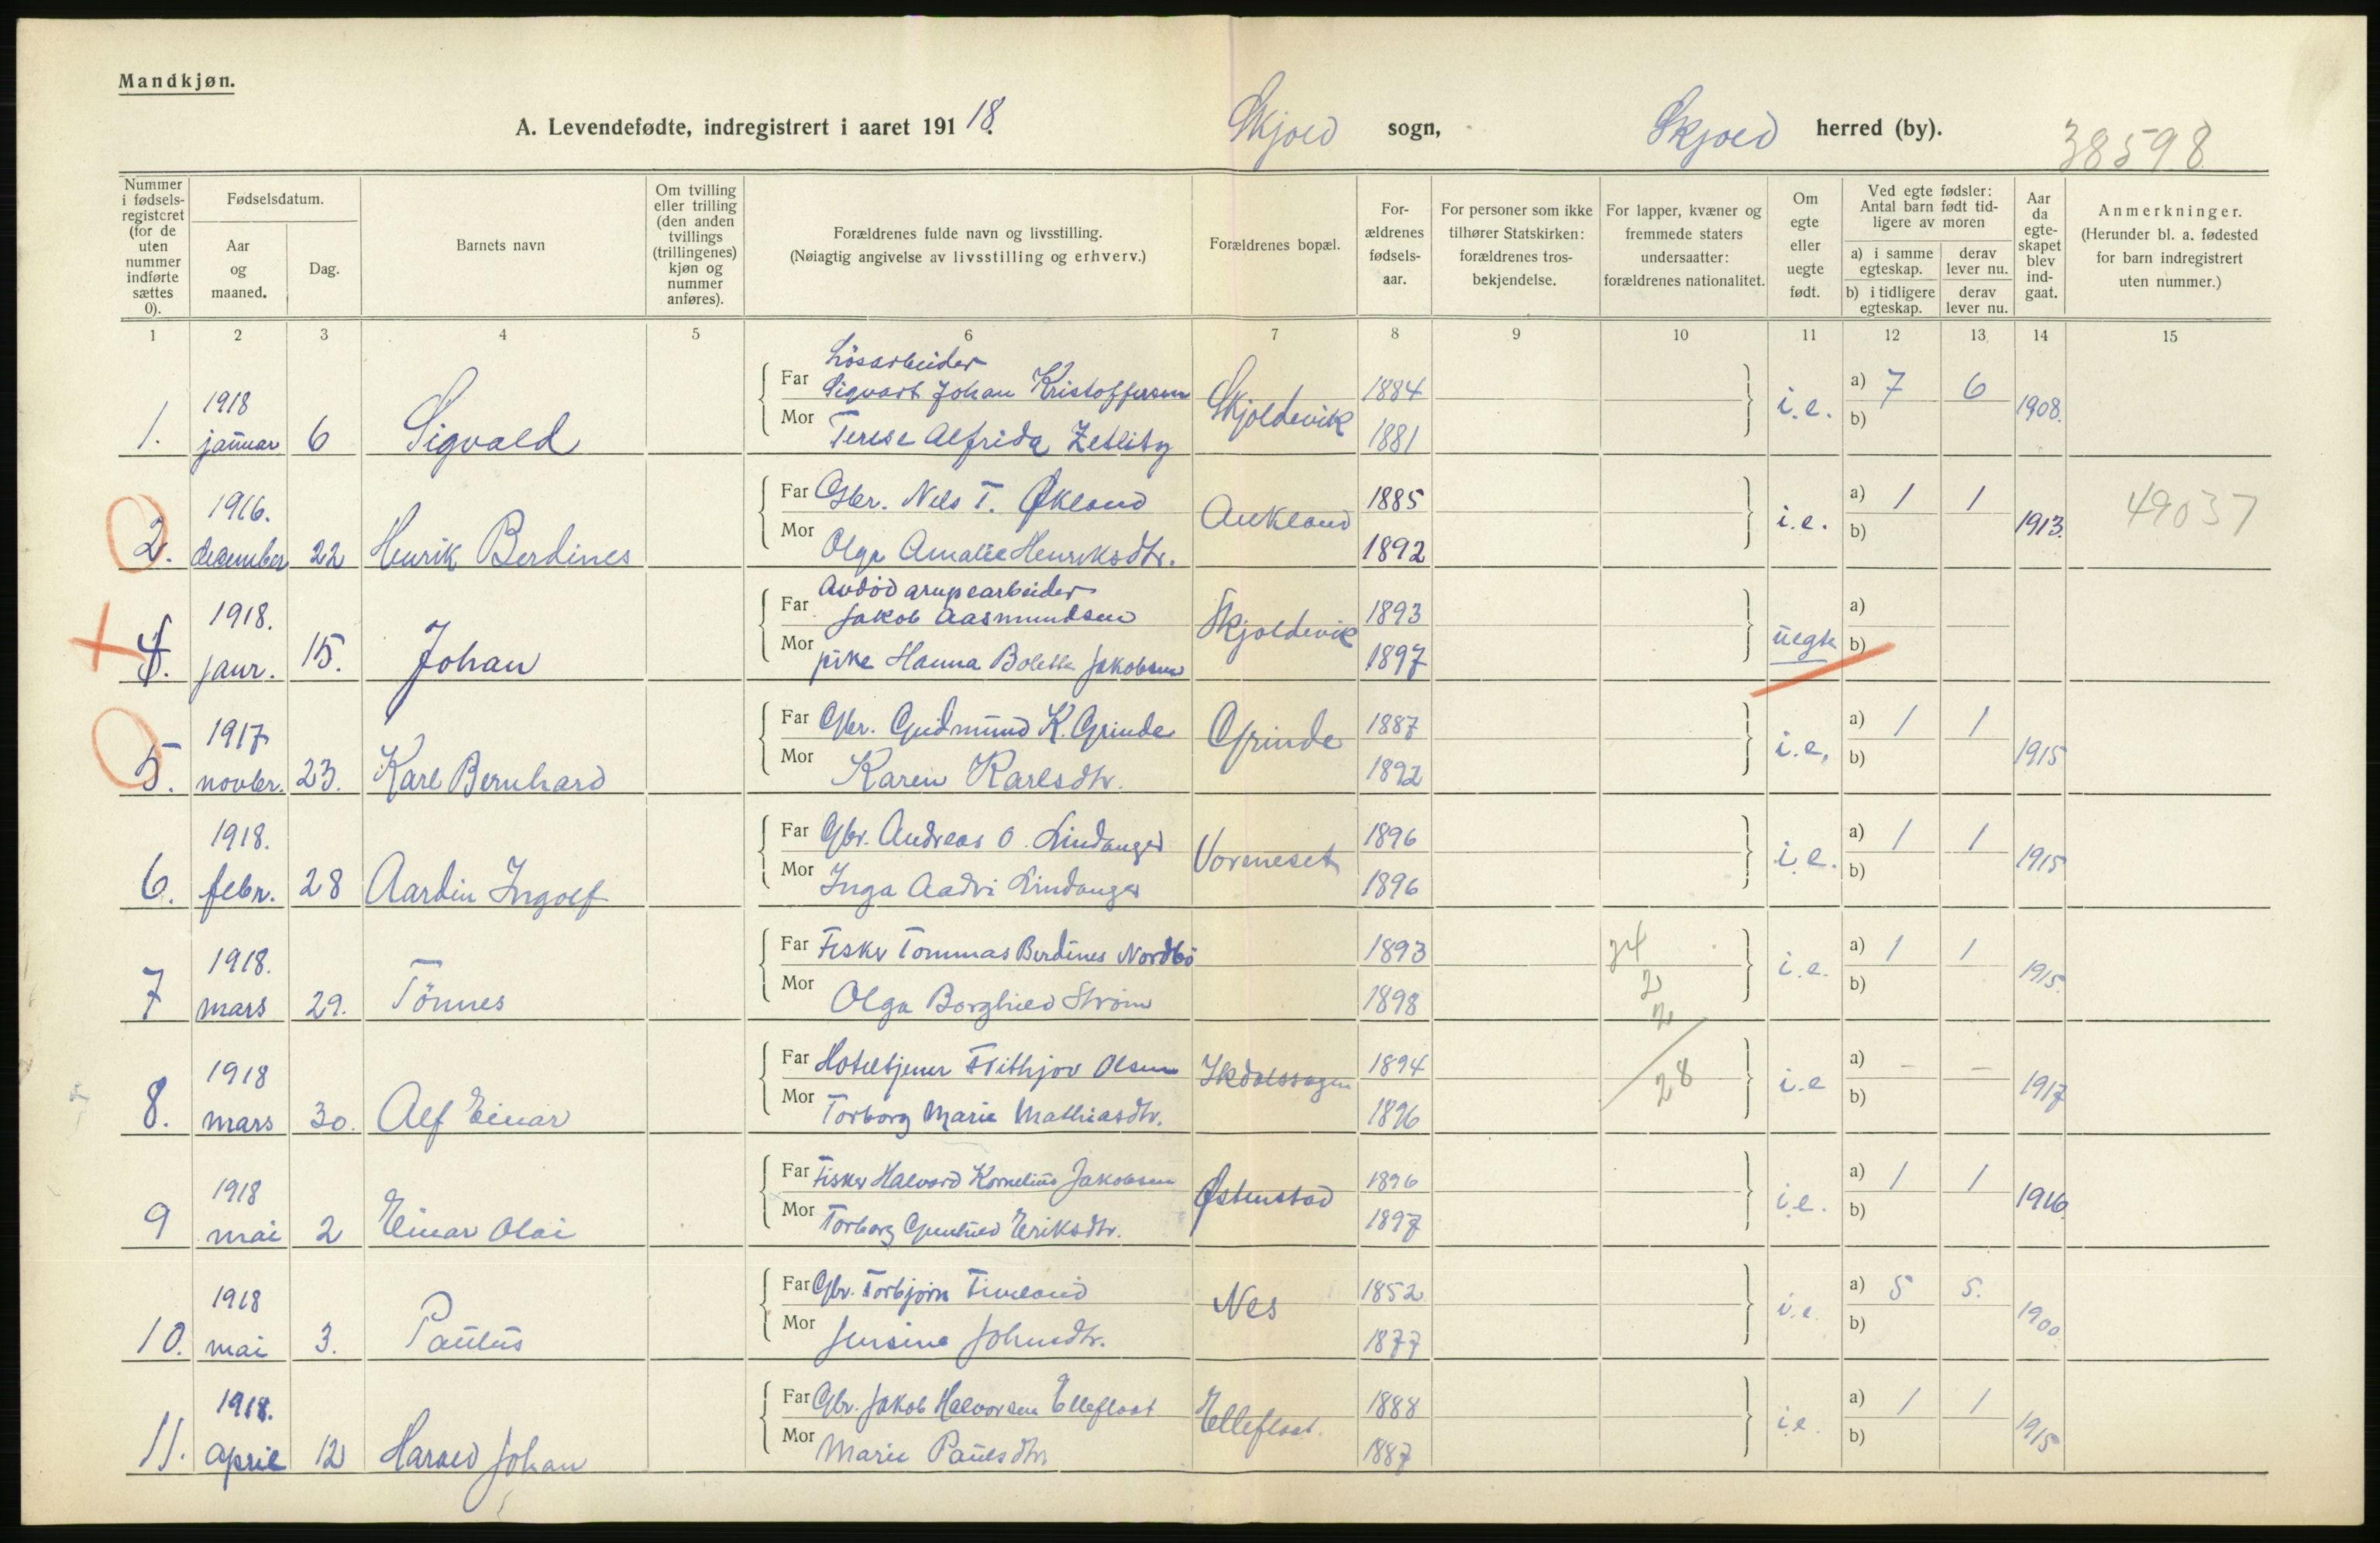 Mandkjøn.
A. Levendefødte, indregistrert i aaret 191 18. Skjold sogn, Skjold herred (by). 38598
Nummer i fødsels-registeret (for de uten nummer indførte sættes 0).
Fødselsdatum.
Aar og maaned.
Dag.
Barnets navn
Om tvilling eller trilling (den anden tvillings (trillingenes) kjøn og nummer anføres).
Forældrenes fulde navn og livsstilling.
(Nøiagtig angivelse av livsstilling og erhverv.)
Forældrenes bopæl.
For-ældrenes fødsels-aar.
For personer som ikke tilhører Statskirken: forældrenes tros-bekjendelse.
For lapper, kvæner og fremmede staters undersaatter: forældrenes nationalitet.
Om egte eller uegte født.
Ved egte fødsler: Antal barn født tid-ligere av moren
a) i samme egteskap.
derav lever nu.
b) i tidligere egteskap.
derav lever nu.
Aar da egte-skapet blev ind-gaat.
Anmerkninger.
(Herunder bl. a. fødested for barn indregistrert uten nummer.)
1 2 3 4 5 6 7 8 9 10 11 12 13 14 15
Løsarbeider
Far Sigvart Johan Kristoffersen 1884 a) 7 6
1. 1918 januar 6 Sigvald Skjoldevik i.e. 1908.
Mor Terese Alfrida Zetlitz 1881 b)
Far Gbr. Nils T. Økland 1885 a) 1 1
2. 1916. december 22 Henrik Berdines Aukland i.e. 1913. 49037
Mor Olga Amalie Henriksdtr. 1892 b)
Avdød
Far Jakob Aasmundsen 1893 a)
4. 1918. janr. 15. Johan Skjoldevik uegte
Mor pike Hanna Bolette Jakobsen 1897 b)
Far Gbr. Gudmund K. Grinde 1887 a) 1 1
5. 1917 novbr. 23. Karl Bernhard Grinde i.e. 1915
Mor Karen Karlsdtr. 1892 b)
Far Gbr. Andreas O. Lindanger 1896 a) 1 1
6. 1918. febr. 28 Aardin Ingolf Vormeset i.e. 1915
Mor Inga Aadvi Lindanger 1896 b)
Far Fisker Tommas Berdines Nordbö 1893 24 a) 1 1
7 1918. mars 29. Tönnes 2 i.e. 1915.
Mor Olga Borghild Ström 1898 2 b)
Far Hoteltjener Frithjov Olsen 1894 a) - -
8. 1918 mars 30. Alf Einar 28 i.e 1917
Mor Torborg Marie Mathiasdtr. 1896 b)
Far Fisker Halvard Kornelius Jakobsen 1896 a) 1 1
9 1918 mai 2 Einar Olai Østenstad i.e. 1916.
Mor Torborg Gunhild Eriksdtr. 1897 b)
Far Gbr. Torbjörn Timland 1852 a) 5 5.
10. 1918 mai 3. Paulus Nes i.e. 1900
Mor Jensine Johnsdtr. 1877 b)
Far Gbr. Jakob Halvorsen Elleflaat 1888 a) 1 1
11. 1918. april 12 Harald Johan Elleflaat. i.e. 1915
Mor Marie Paulsdtr. 1887 b)